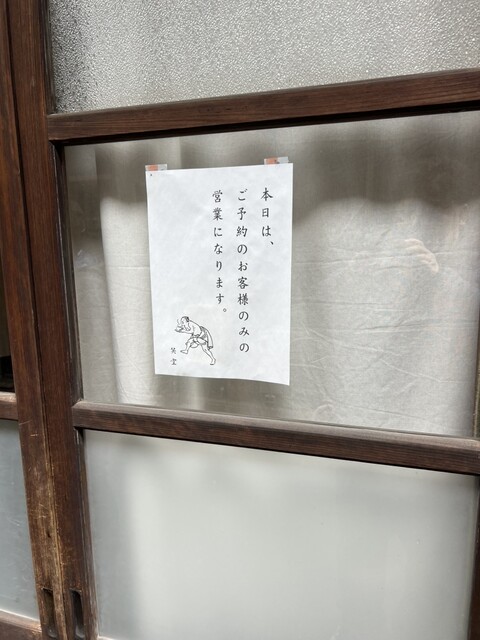 本日は、
ご予約のお客様のみの
営業になります。